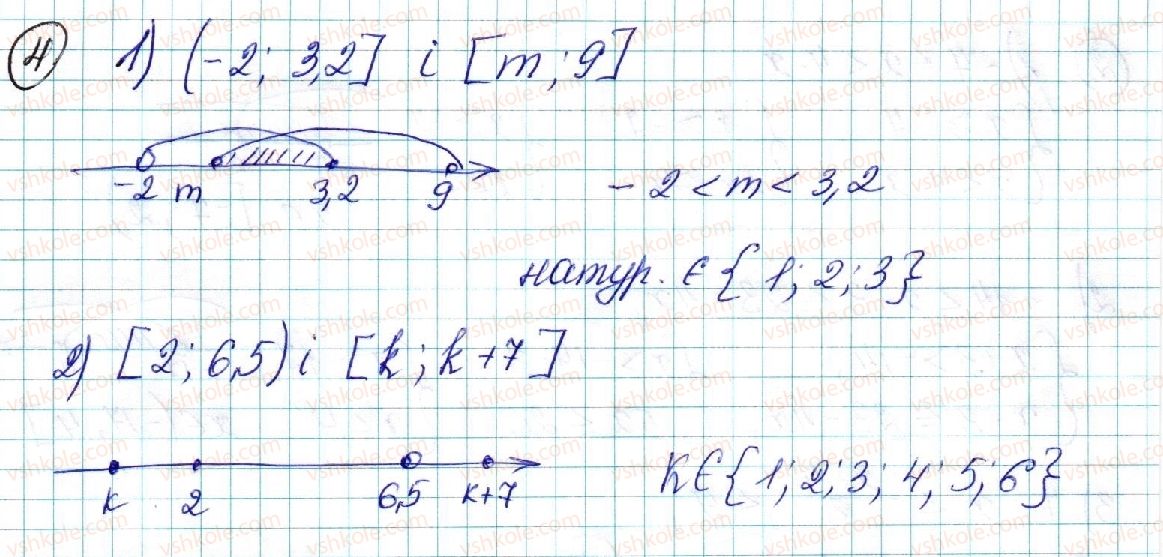 4 1) (-2; 3,2] і [m; 9]
-2 m 3,2 9 -2 < m < 3,2
натур. є {1; 2; 3}
2) [2; 6,5) і [k; k+7]
k 2 6,5 k+7 K Є {1; 2; 3; 4; 5; 6}